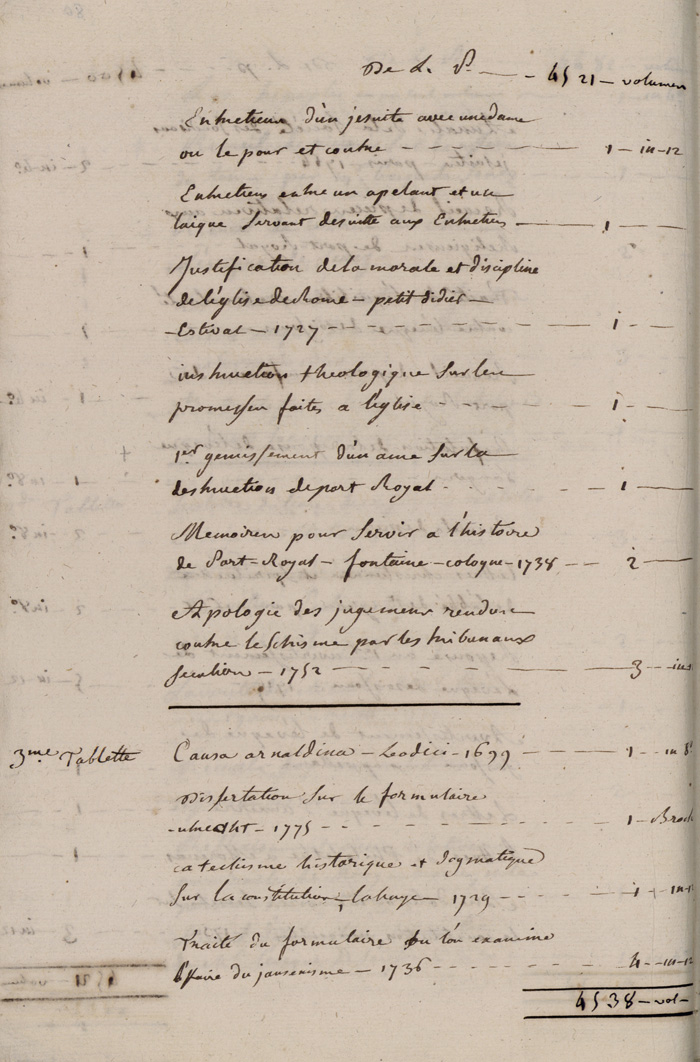 De L. P. — 4521 — volumes
Entretiens d'un jesuite avec une dame
ou le pour et contre — 1 — in-12
Entretiens entre un apelant et un
laique servant de suitte aux Entretiens — 1 —
Justification de la morale et discipline
de l'église de Rome — petit didier —
Estival — 1727 — 1 —
instruction theologique sur les
promesses faites a l'église — 1 —
1er gemissement d'un ame sur la
destruction de port Royal — 1 —
Memoires pour servir a l'histoire
de Port-Royal — fontaine — cologne — 1738 — 2 —
Apologie des jugemens rendus
contre le schisme par les tribunaux
seculiers — 1752 — 3 — in-1
3me Tablette Causa arnaldina — Leodici — 1699 — 1 — in 8º
Dissertation sur le formulaire
utrecht — 1775 — 1 — Broch
catechisme historique et dogmatique
sur la constitution, la haye 1729 — 1 — in-12
Traité du formulaire ou l'on examine
l'affaire du jansenisme — 1736 — 4 — in-12
4538 — vol —